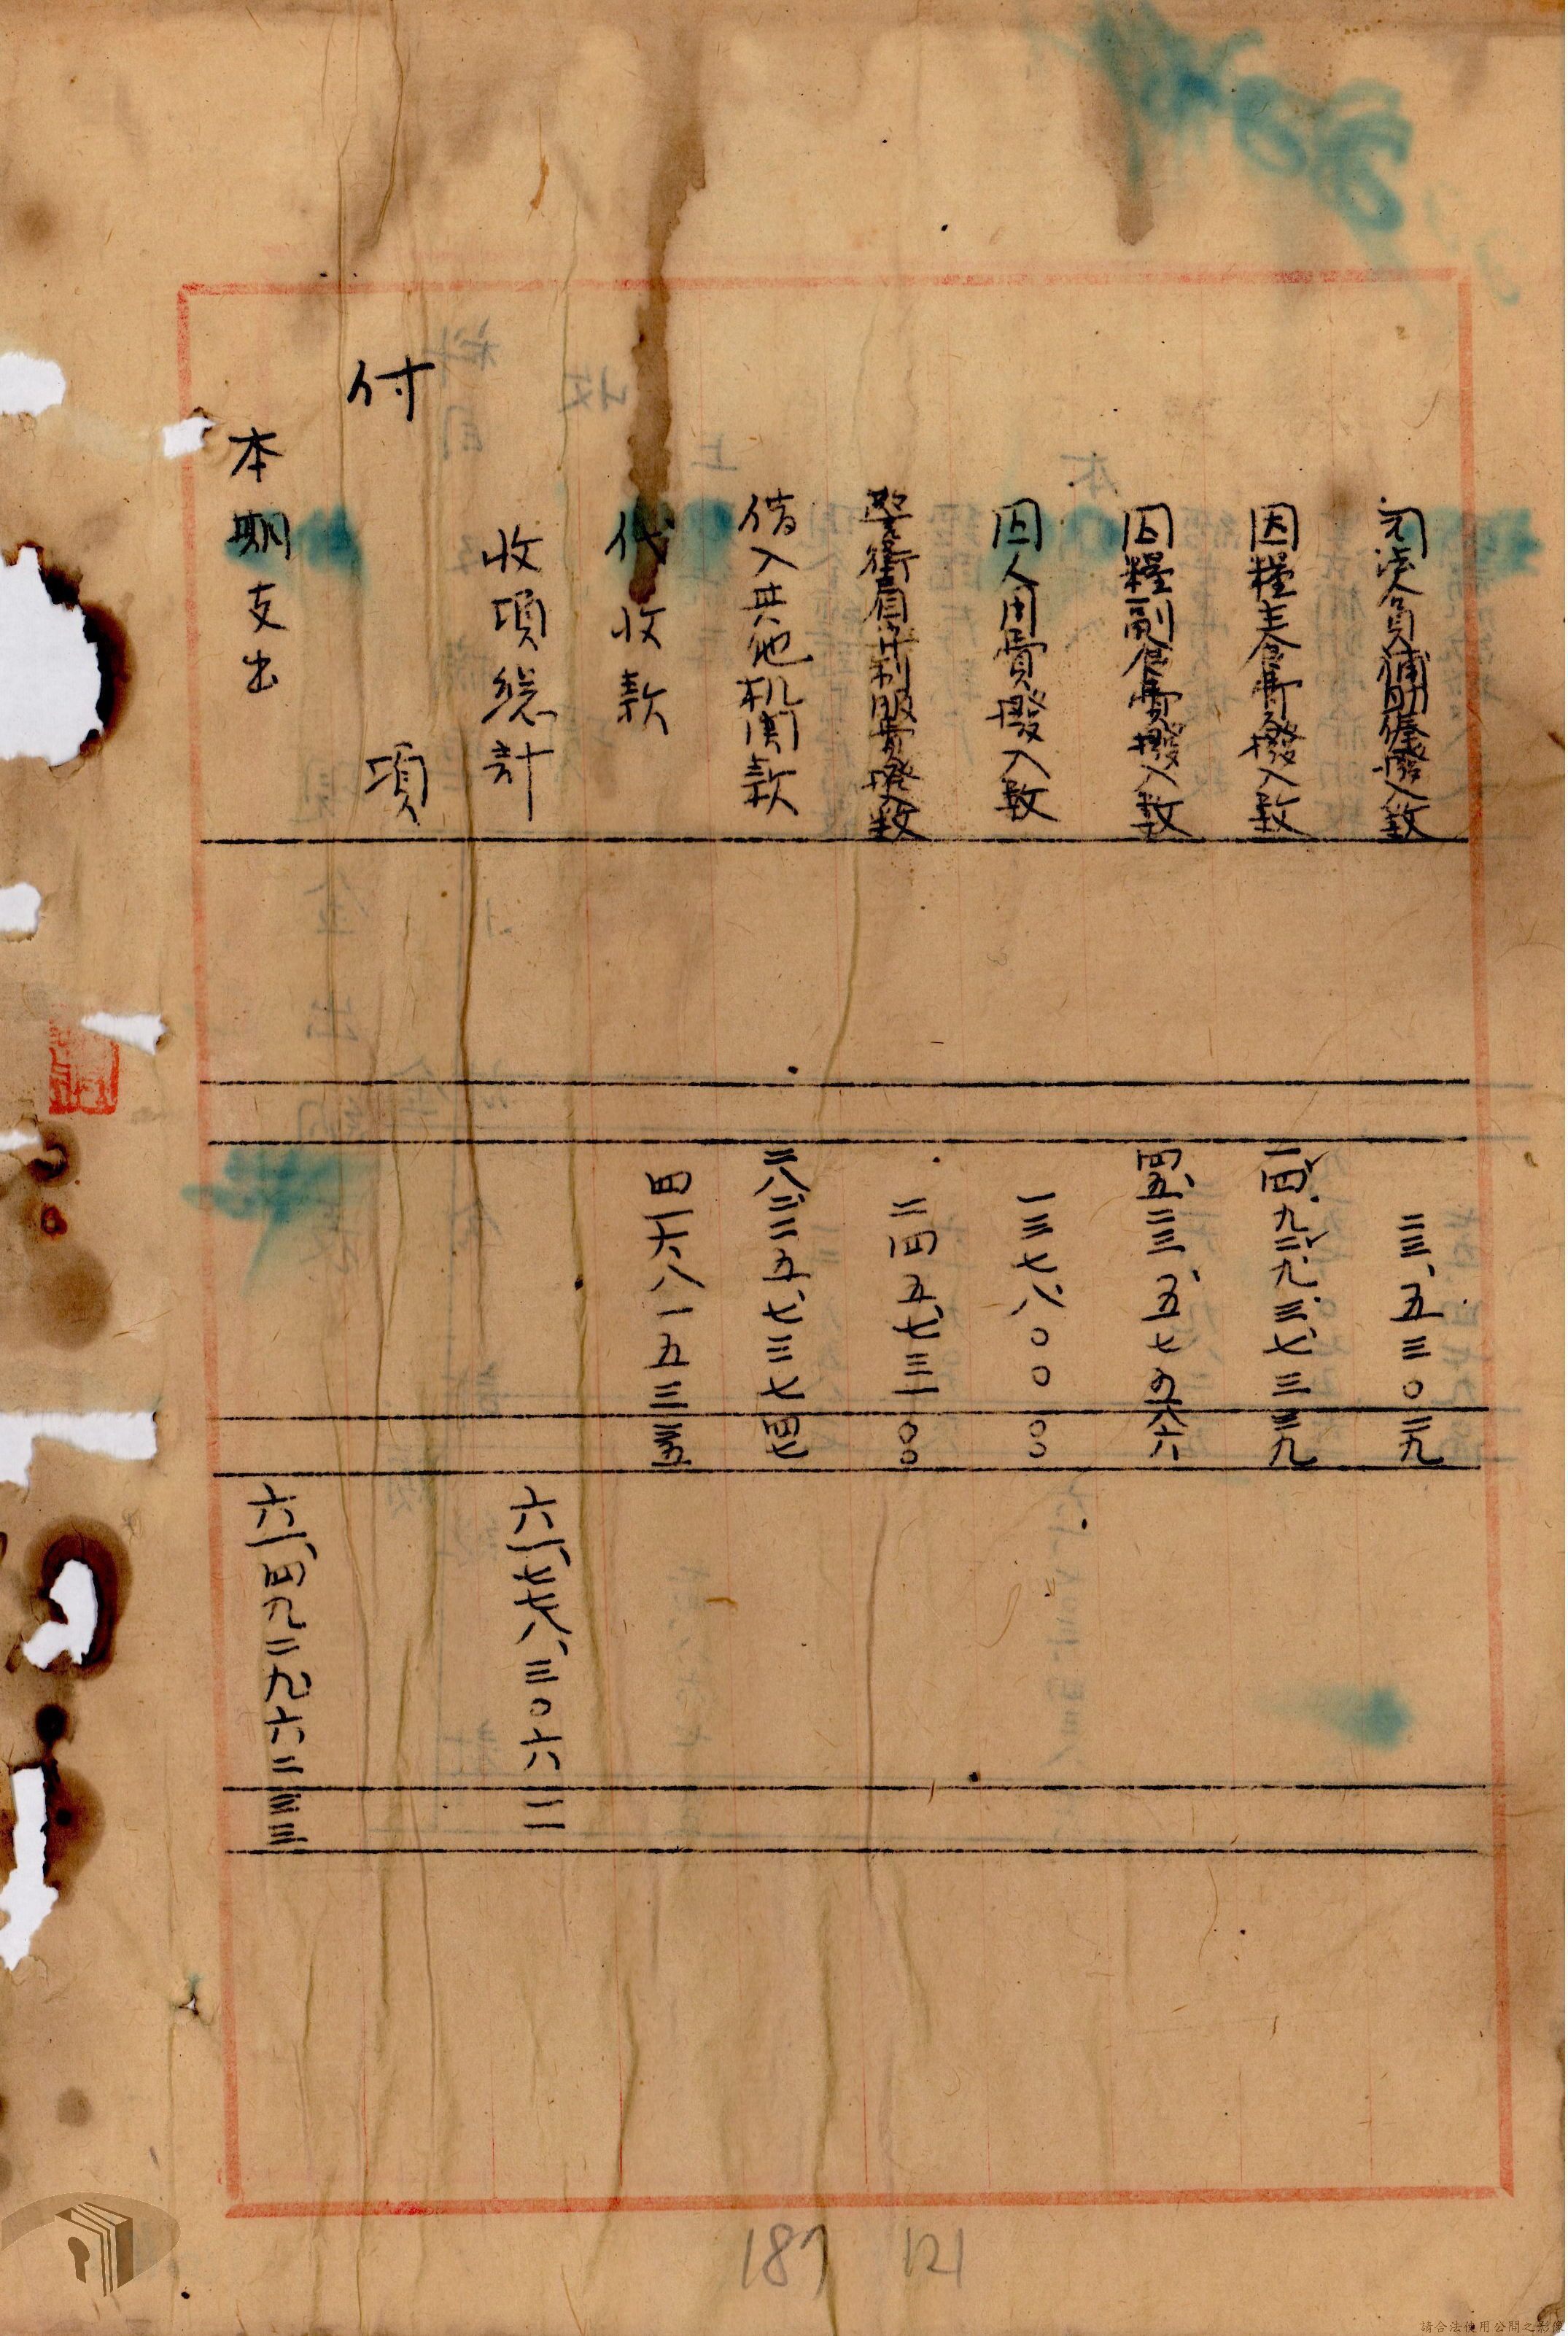 司法人員補助俸撥入數 二三、五三〇二九
囚糧主食費撥入數 一四、九二九、三七三三九
囚糧副食費撥入數 四五、二三三、五七四六六
囚人用費撥入數 一三七八〇〇〇〇
警衛肩章制服費撥入數 二四五、七三一〇〇
借入其他机関款 二八二二五、七三七四七
代收款 四一六八一五三三五
收項總計 六一、七七八、三〇六二二
付項
本期支出 六一、四九二九六二三三
187 121
請合法使用公開之影像